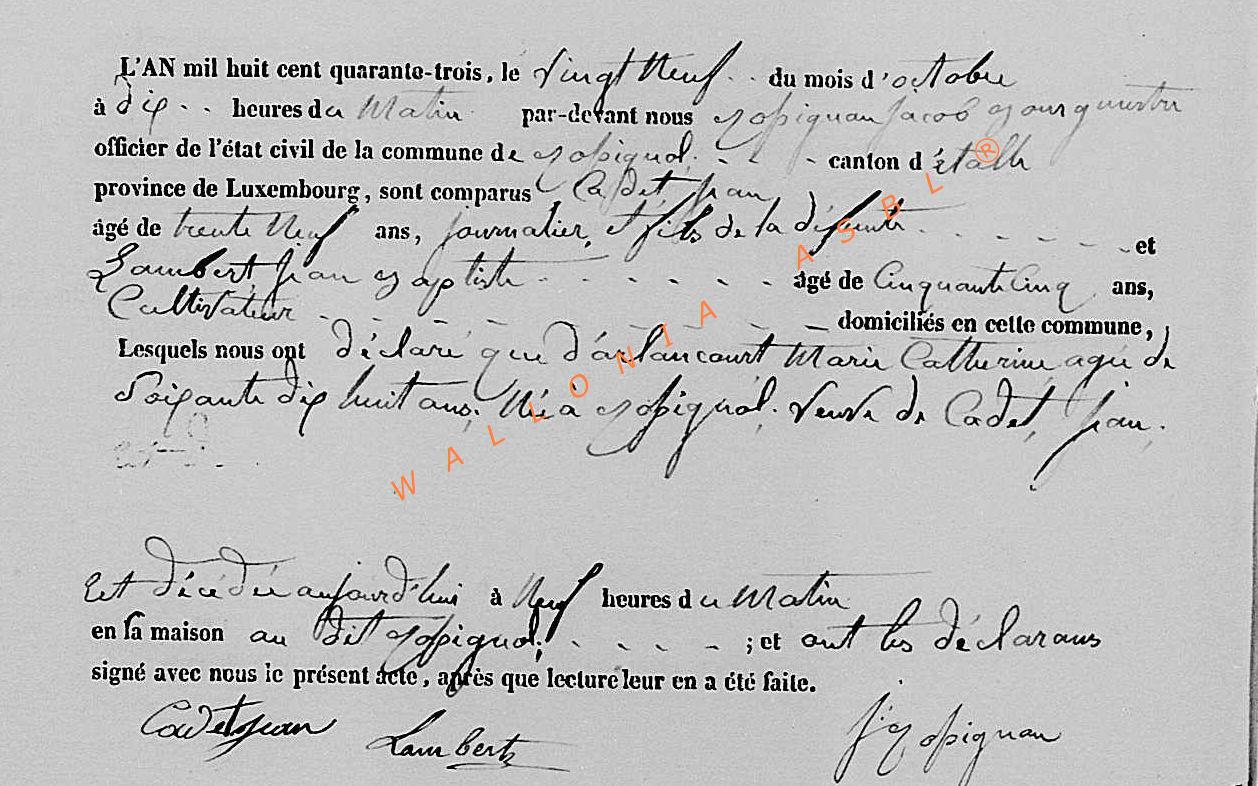 L'AN mil huit cent quarante-trois, le vingt Neuf - - du mois d'octobre
à dix - - heures du Matin par-devant nous Jacob Bourguemestre
officier de l'état civil de la commune de - - - canton d'étalle
province de Luxembourg, sont comparus Cadet, jean
âgé de trente Neuf ans, journalier, et fils de la défunte - - - - - - et
Lambert jean Baptiste - - - - - - âgé de Cinquante Cinq ans,
Cultivateur - - - - - - - - domiciliés en cette commune,
Lesquels nous ont déclaré que d'arlancourt Marie Catherine agée de
Soixante dix huit ans, Née à veuve de Cadet, jean.
Est décédée aujourd'hui à Neuf heures du Matin
en sa maison au dit ; - - - - ; et ont les déclarans
signé avec nous le présent acte, après que lecture leur en a été faite.
Cadet jean Lambert
WALLONIA ASBL ®